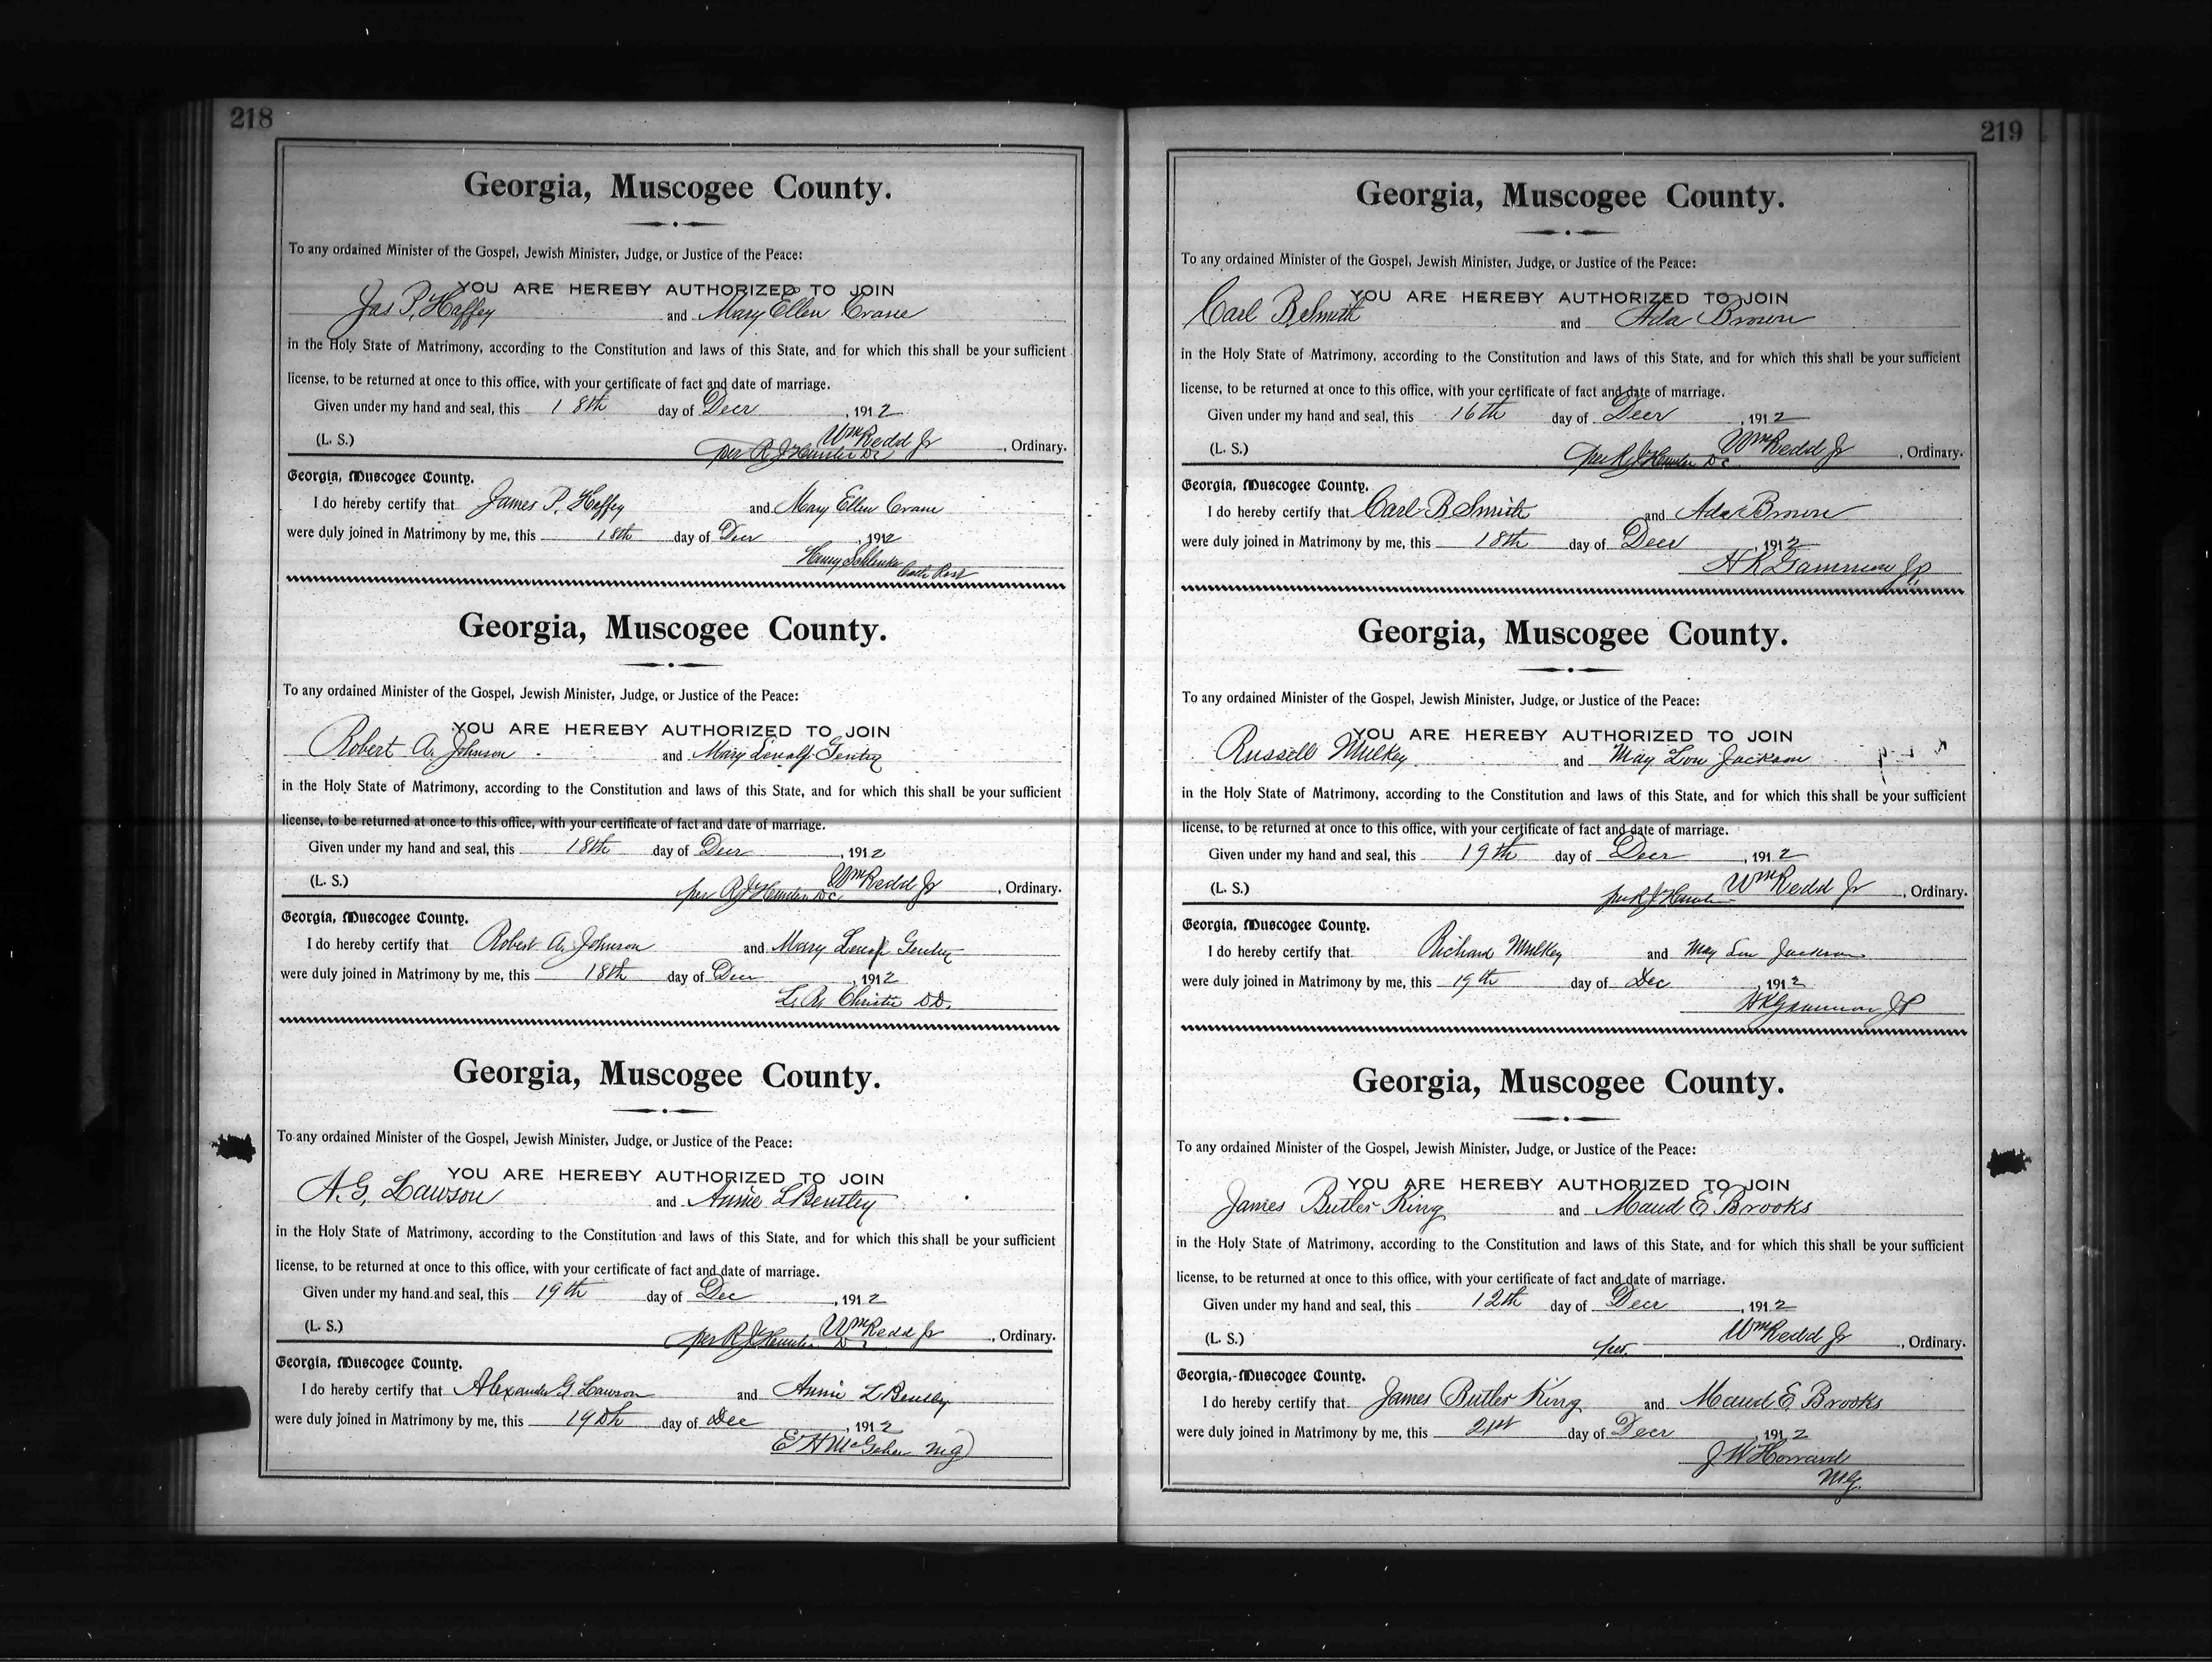 218
Georgia, Muscogee County.
To any ordained Minister of the Gospel, Jewish Minister, Judge, or Justice of the Peace:
YOU ARE HEREBY AUTHORIZED TO JOIN
Jas P. Haffey and Mary Ellen Crane
in the Holy State of Matrimony, according to the Constitution and laws of this State, and for which this shall be your sufficient
license, to be returned at once to this office, with your certificate of fact and date of marriage.
Given under my hand and seal, this 18th day of Decr, 1912
(L. S.) per R J Wm Redd Jr, Ordinary.
Georgia, Muscogee County.
I do hereby certify that James P. Haffey and Mary Ellen Crane
were duly joined in Matrimony by me, this 18th day of Decr, 1912
Henry
Georgia, Muscogee County.
To any ordained Minister of the Gospel, Jewish Minister, Judge, or Justice of the Peace:
YOU ARE HEREBY AUTHORIZED TO JOIN
Robert A. Johnson and Mary Gentry
in the Holy State of Matrimony, according to the Constitution and laws of this State, and for which this shall be your sufficient
license, to be returned at once to this office, with your certificate of fact and date of marriage.
Given under my hand and seal, this 18th day of Decr, 1912
(L. S.) per R J DC Wm Redd Jr, Ordinary.
Georgia, Muscogee County.
I do hereby certify that Robert A. Johnson and Mary Gentry
were duly joined in Matrimony by me, this 18th day of Decr, 1912
L. R. Christie D.D.
Georgia, Muscogee County.
To any ordained Minister of the Gospel, Jewish Minister, Judge, or Justice of the Peace:
YOU ARE HEREBY AUTHORIZED TO JOIN
A. G. Lawson and Annie L Bentley
in the Holy State of Matrimony, according to the Constitution and laws of this State, and for which this shall be your sufficient
license, to be returned at once to this office, with your certificate of fact and date of marriage.
Given under my hand and seal, this 19th day of Dec, 1912
(L. S.) per R J Wm Redd Jr, Ordinary.
Georgia, Muscogee County.
I do hereby certify that Alexander G Lawson and Annie L Bentley
were duly joined in Matrimony by me, this 19th day of Dec, 1912
E H McGehee MG
219
Georgia, Muscogee County.
To any ordained Minister of the Gospel, Jewish Minister, Judge, or Justice of the Peace:
YOU ARE HEREBY AUTHORIZED TO JOIN
Carl B Smith and Ada Brown
in the Holy State of Matrimony, according to the Constitution and laws of this State, and for which this shall be your sufficient
license, to be returned at once to this office, with your certificate of fact and date of marriage.
Given under my hand and seal, this 16th day of Decr, 1912
(L. S.) per R J DC Wm Redd Jr, Ordinary.
Georgia, Muscogee County.
I do hereby certify that Carl B. Smith and Ada Brown
were duly joined in Matrimony by me, this 18th day of Decr, 1912
H K Gammon JP
Georgia, Muscogee County.
To any ordained Minister of the Gospel, Jewish Minister, Judge, or Justice of the Peace:
YOU ARE HEREBY AUTHORIZED TO JOIN
Russell Mulkey and May Lou Jackson
in the Holy State of Matrimony, according to the Constitution and laws of this State, and for which this shall be your sufficient
license, to be returned at once to this office, with your certificate of fact and date of marriage.
Given under my hand and seal, this 19th day of Decr, 1912
(L. S.) per R J Wm Redd Jr, Ordinary.
Georgia, Muscogee County.
I do hereby certify that Richard Mulkey and May Lou Jackson
were duly joined in Matrimony by me, this 19th day of Dec, 1912
H K Gammon JP
Georgia, Muscogee County.
To any ordained Minister of the Gospel, Jewish Minister, Judge, or Justice of the Peace:
YOU ARE HEREBY AUTHORIZED TO JOIN
James Butler King and Maud E. Brooks
in the Holy State of Matrimony, according to the Constitution and laws of this State, and for which this shall be your sufficient
license, to be returned at once to this office, with your certificate of fact and date of marriage.
Given under my hand and seal, this 12th day of Decr, 1912
(L. S.) per Wm Redd Jr, Ordinary.
Georgia, Muscogee County.
I do hereby certify that James Butler King and Maud E. Brooks
were duly joined in Matrimony by me, this 21st day of Decr, 1912
J W Howard
MG